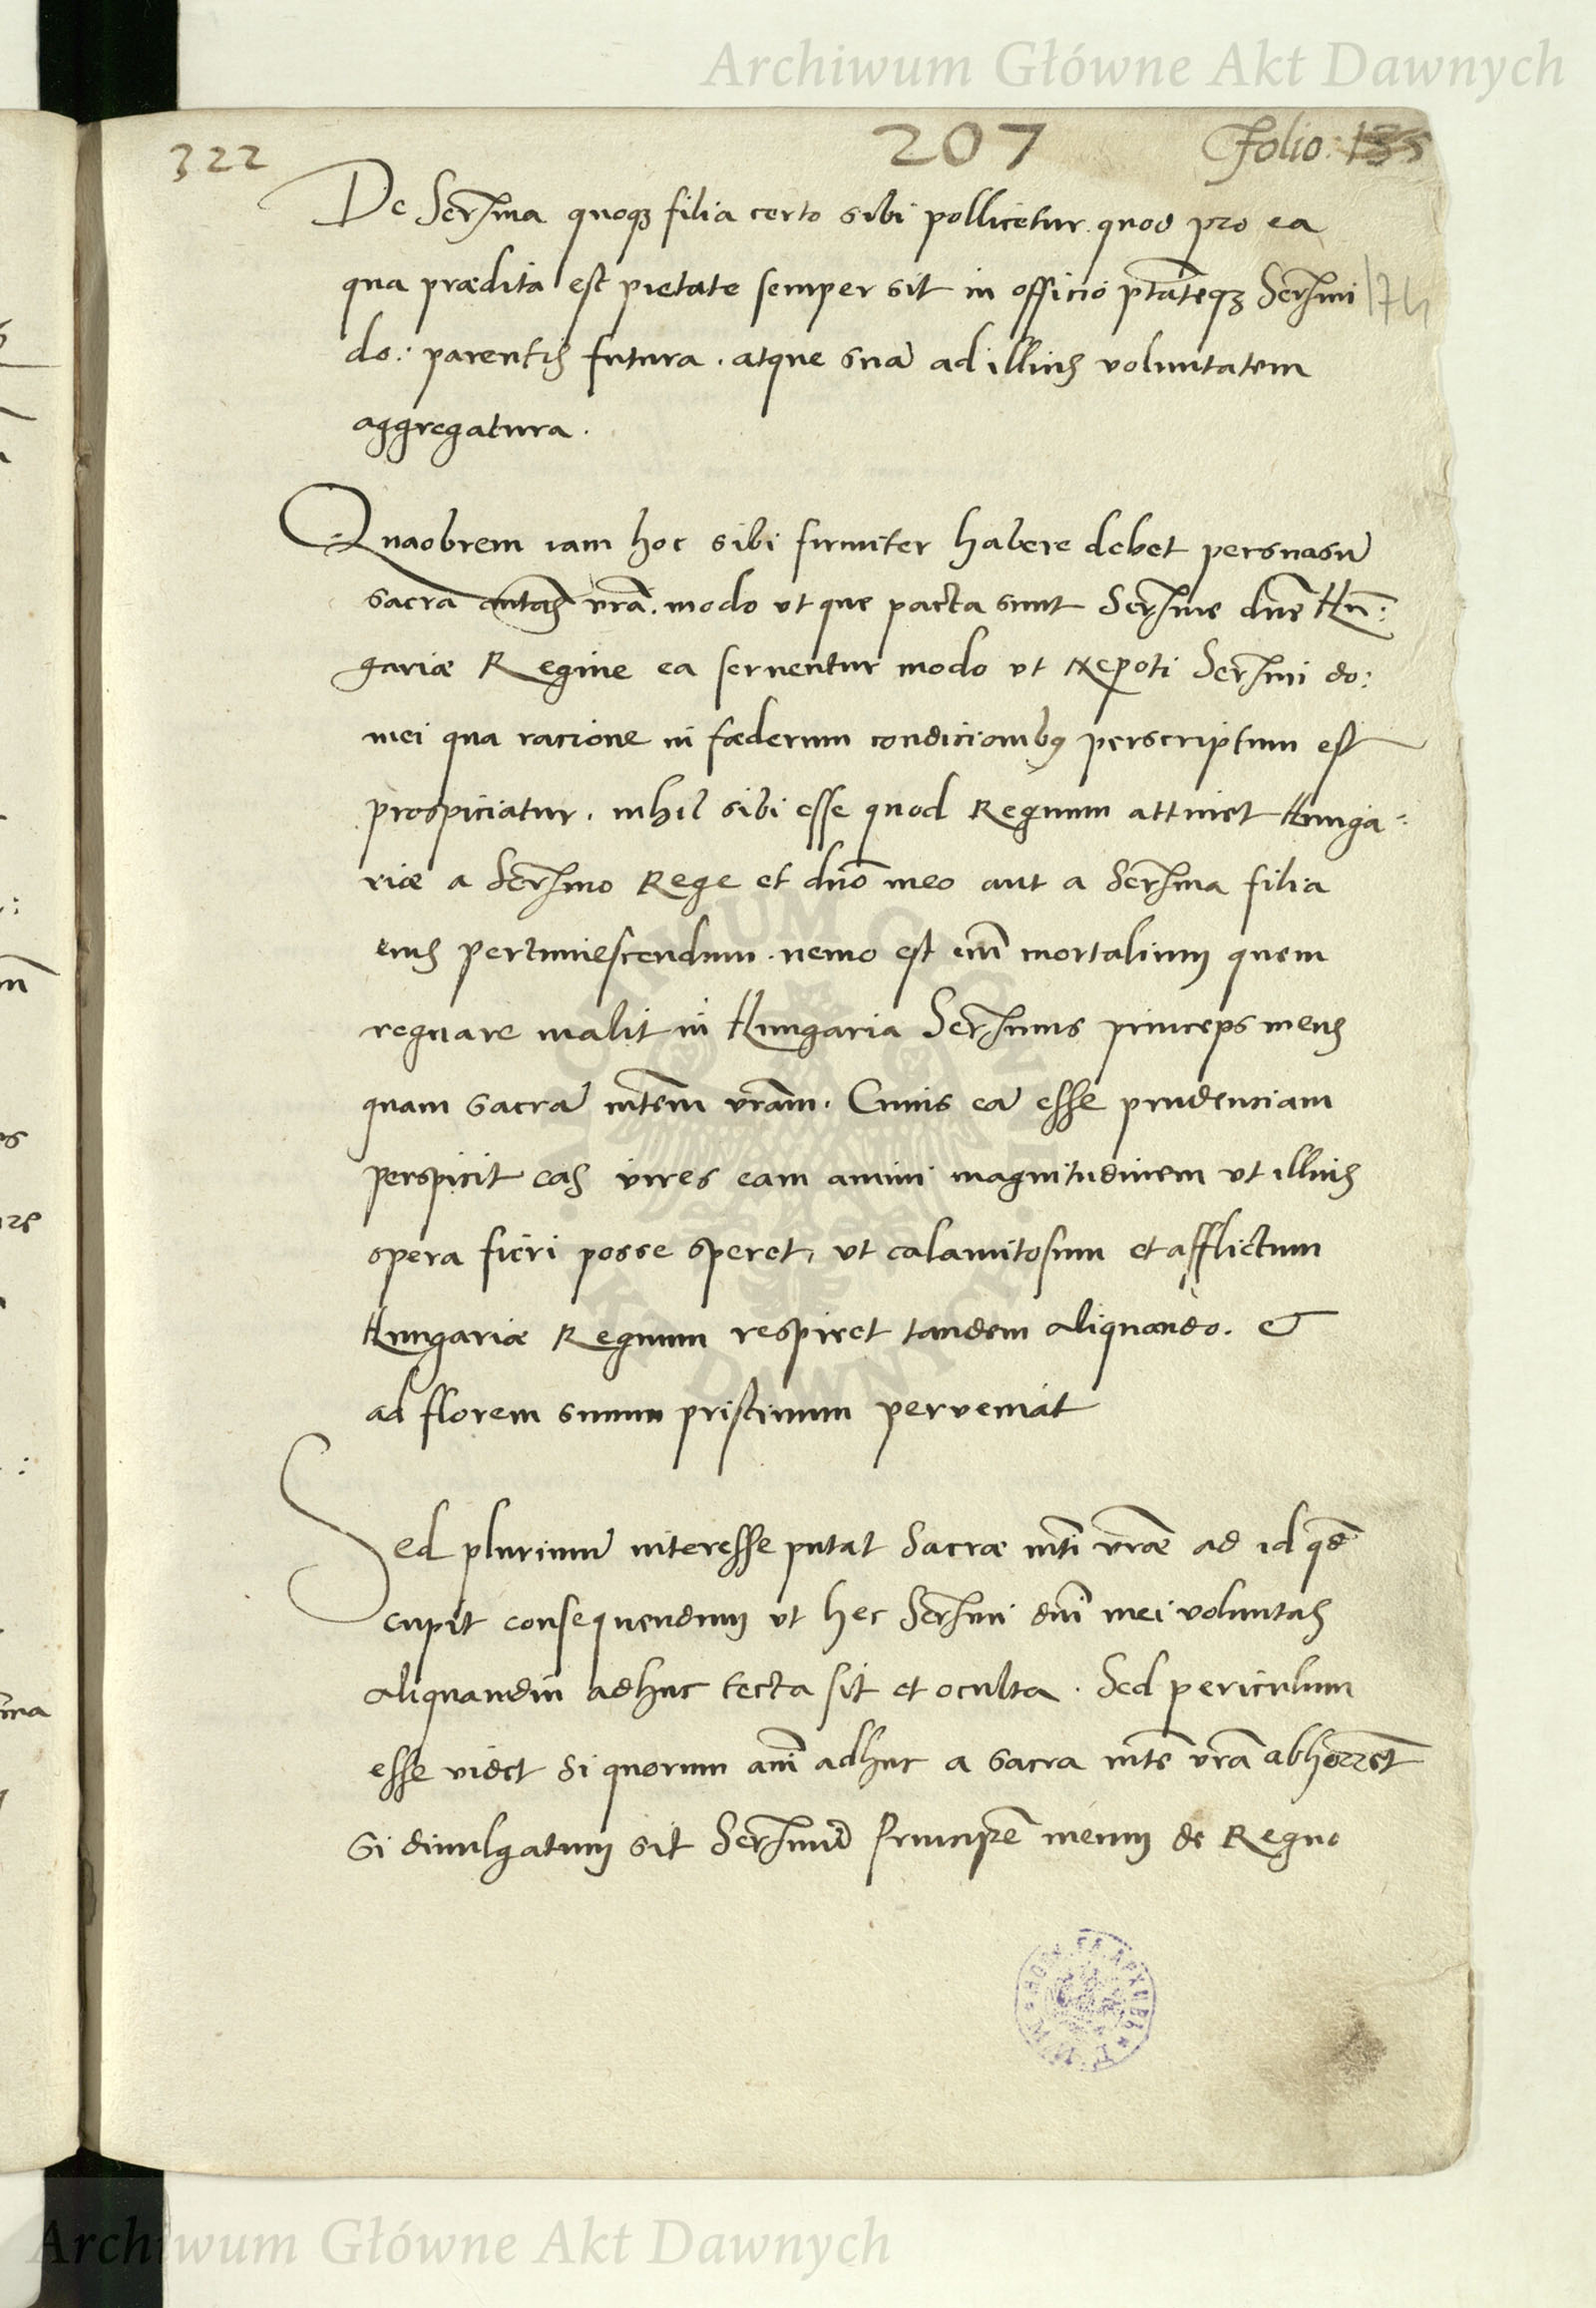 Archiwum Główne Akt Dawnych
322 207 Folio: 135
De Serma quoqȝ filia certo sibi pollicetur. quod pro ea
qua prædita est pietate semper sit in officio ptãteqȝ Sermi
do: parentis futura. atque suã ad illius voluntatem
aggregatura.
Quaobrem iam hoc sibi firmiter habere debet persuasũ
sacra mtas vrã. modo ut que pacta sunt Serme dnẽ Hũ:
gariæ Regine ea seruentur modo ut Nepoti Sermi do:
mei qua racione in fœderum condicionibꝫ perscriptum est
prospiciatur. nihil sibi esse quod Regnum attinet Hunga:
riæ a Sermo Rege et dnõ meo aut a Serma filia
eius pertimescendum. nemo est em̃ mortalium quem
regnare malit in Hungaria Sermus princeps meus
quam sacrã mtem vrãm. Cuius eã esse prudenciam
perspicit eas vires eam animi magnitudinem ut illius
opera fieri posse speret, ut calamitosum et afflictum
Hungariæ Regnum respiret tandem aliquando. &
ad florem suum pristinum perveniat
Sed plurimũ interesse putat Sacræ mti vræ ad id qđ
cupit consequendum ut hec Sermi dni mei voluntas
aliquamdiu adhuc tecta sit et oculta. Sed periculum
esse videt si quorum aĩ adhuc a sacra mte vrã abhorrẽt
Si diuulgatum sit Sermũ Principẽ meum de Regno
Archiwum Główne Akt Dawnych